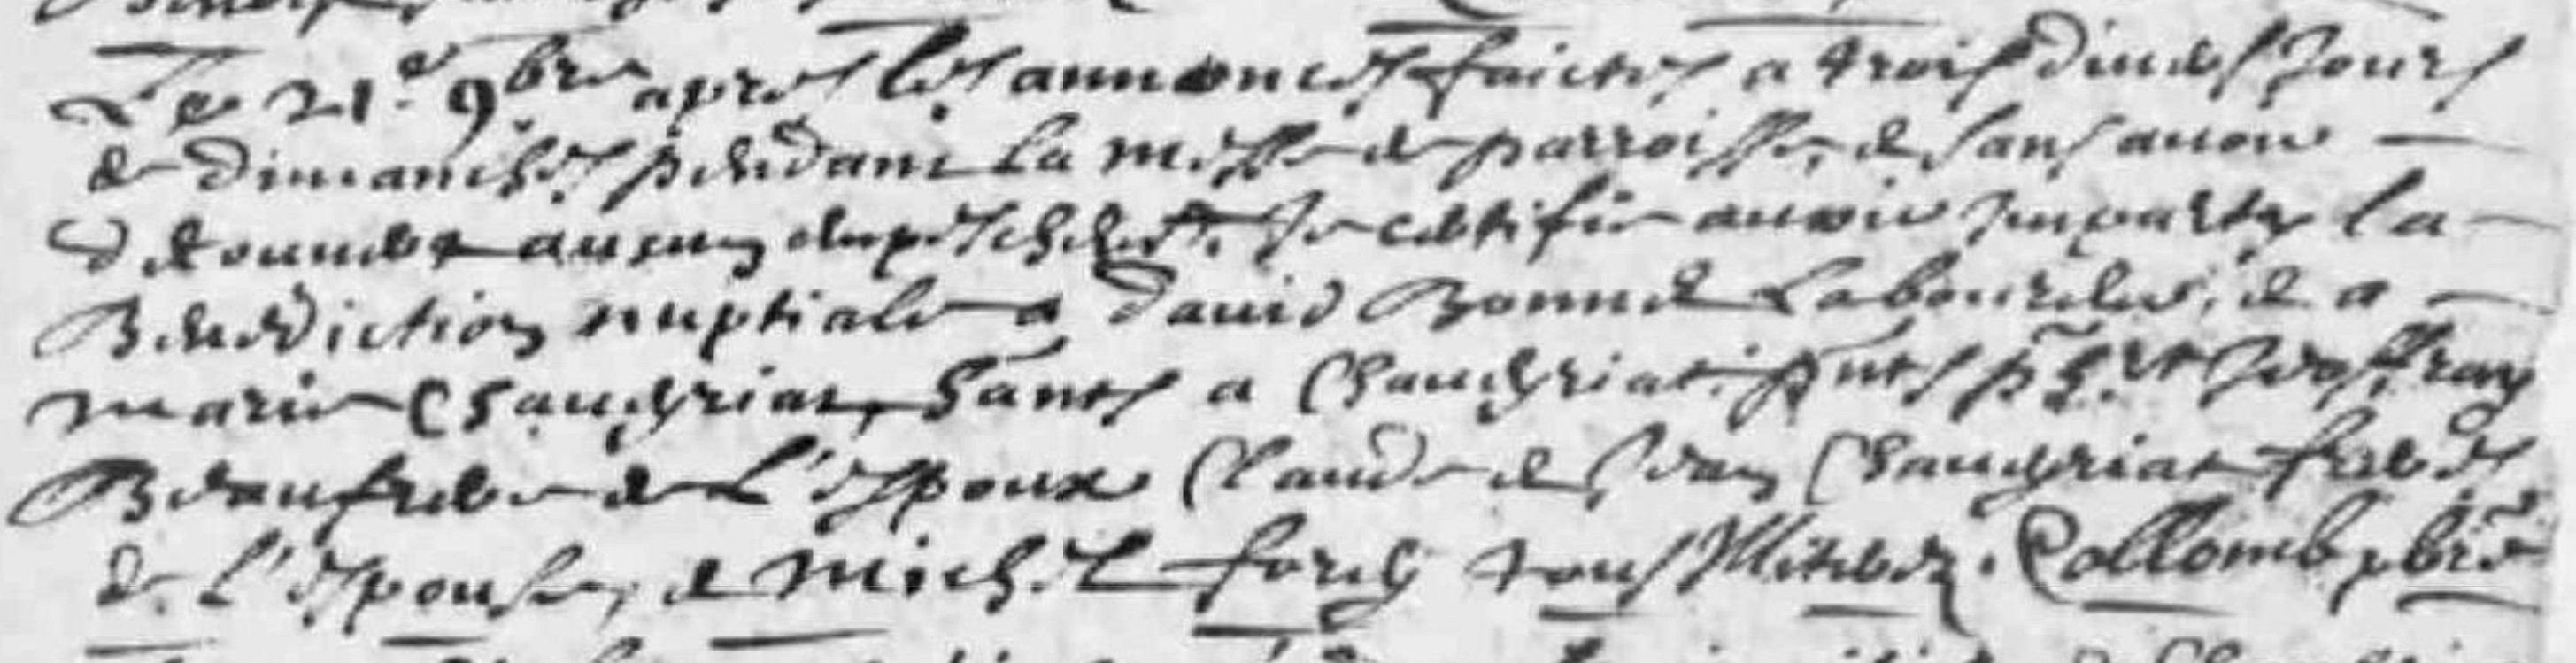 Le 21.e 9bre apres les annonces faictes a trois divers Jours
de dimanches pendant la messe de parroisse, et sans avoir
descouvert aucun empeschement. Je certifie avoir Imparty la
Benediction nuptiale a David Bonnet Laboureur, et a
marie Chaugriat, hãnts a Chaugriat. pñts
Beaufrere de L'espoux Claude et Jean Chaugriat freres
de L'espouse, et Michel forey tous Illiterez. Collomb pbrẽ